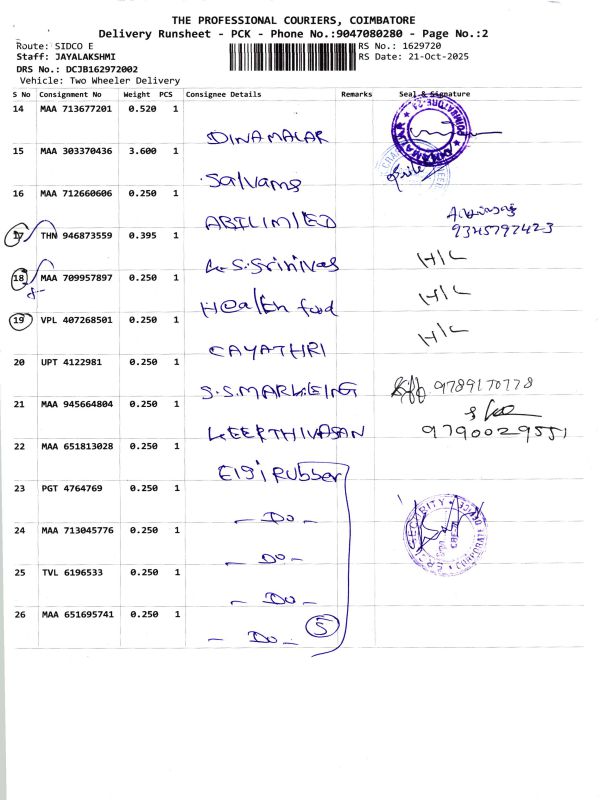 THE PROFESSIONAL COURIERS, COIMBATORE
Delivery Runsheet - PCK - Phone No.:9047080280 - Page No.:2
Route: SIDCO E
RS No.: 1629720
Staff: JAYALAKSHMI
RS Date: 21-Oct-2025
DRS No.: DCJB162972002
Vehicle: Two Wheeler Delivery
S No Consignment No Weight PCS Consignee Details Remarks Seal & Signature
14 MAA 713677201 0.520 1
DINAMALAR
15 MAA 303370436 3.600 1
Salvams
16 MAA 712660606 0.250 1
ABTLIMITED
9345797423
17 THN 946873559 0.395 1
K.S.Srinivas H/L
18 MAA 709957897 0.250 1
Health food H/L
19 VPL 407268501 0.250 1
GAYATHRI H/L
20 UPT 4122981 0.250 1
S.S.MARKEING 9789170778
21 MAA 945664804 0.250 1
KEERTHIVASAN 9790029551
22 MAA 651813028 0.250 1
Elgi Rubber
23 PGT 4764769 0.250 1
- Do -
SECURITY
CORPORATE
24 MAA 713045776 0.250 1
- Do -
25 TVL 6196533 0.250 1
- Do -
26 MAA 651695741 0.250 1
- Do - 5